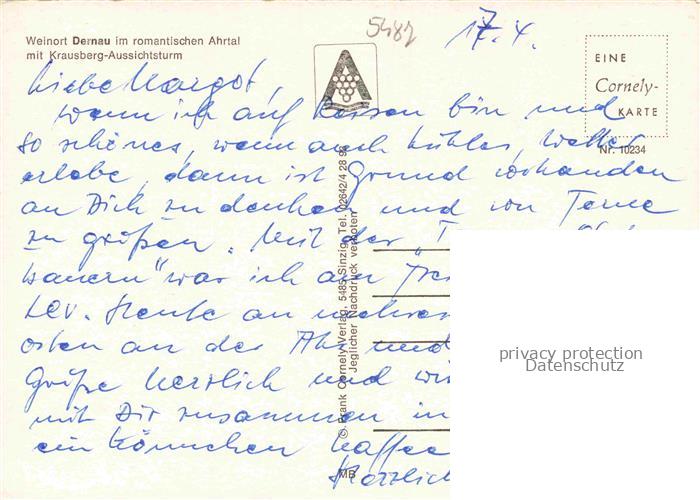 5487
17.4.
Weinort Dernau im romantischen Ahrtal
mit Krausberg-Aussichtsturm
EINE
Cornely-
KARTE
Nr. 10234
Liebe Margot,
wenn ich auf Reisen bin und
so schönes, wenn auch kühles, Wetter
erlebe, dann ist Grund vorhanden
an Dich zu denken und von Ferne
zu grüßen. Mit der
bauern" war ich am
Lev. Heute an mehre
orten an der Ahr und
Grüße herzlich und
mit Dir zusammen in
ein Kännchen Kaffee
Herzlich
© Frank Cornely Verlag, 5485 Sinzig, Tel. 02642/4 28 93
Jeglicher Nachdruck verboten
MB
privacy protection
Datenschutz